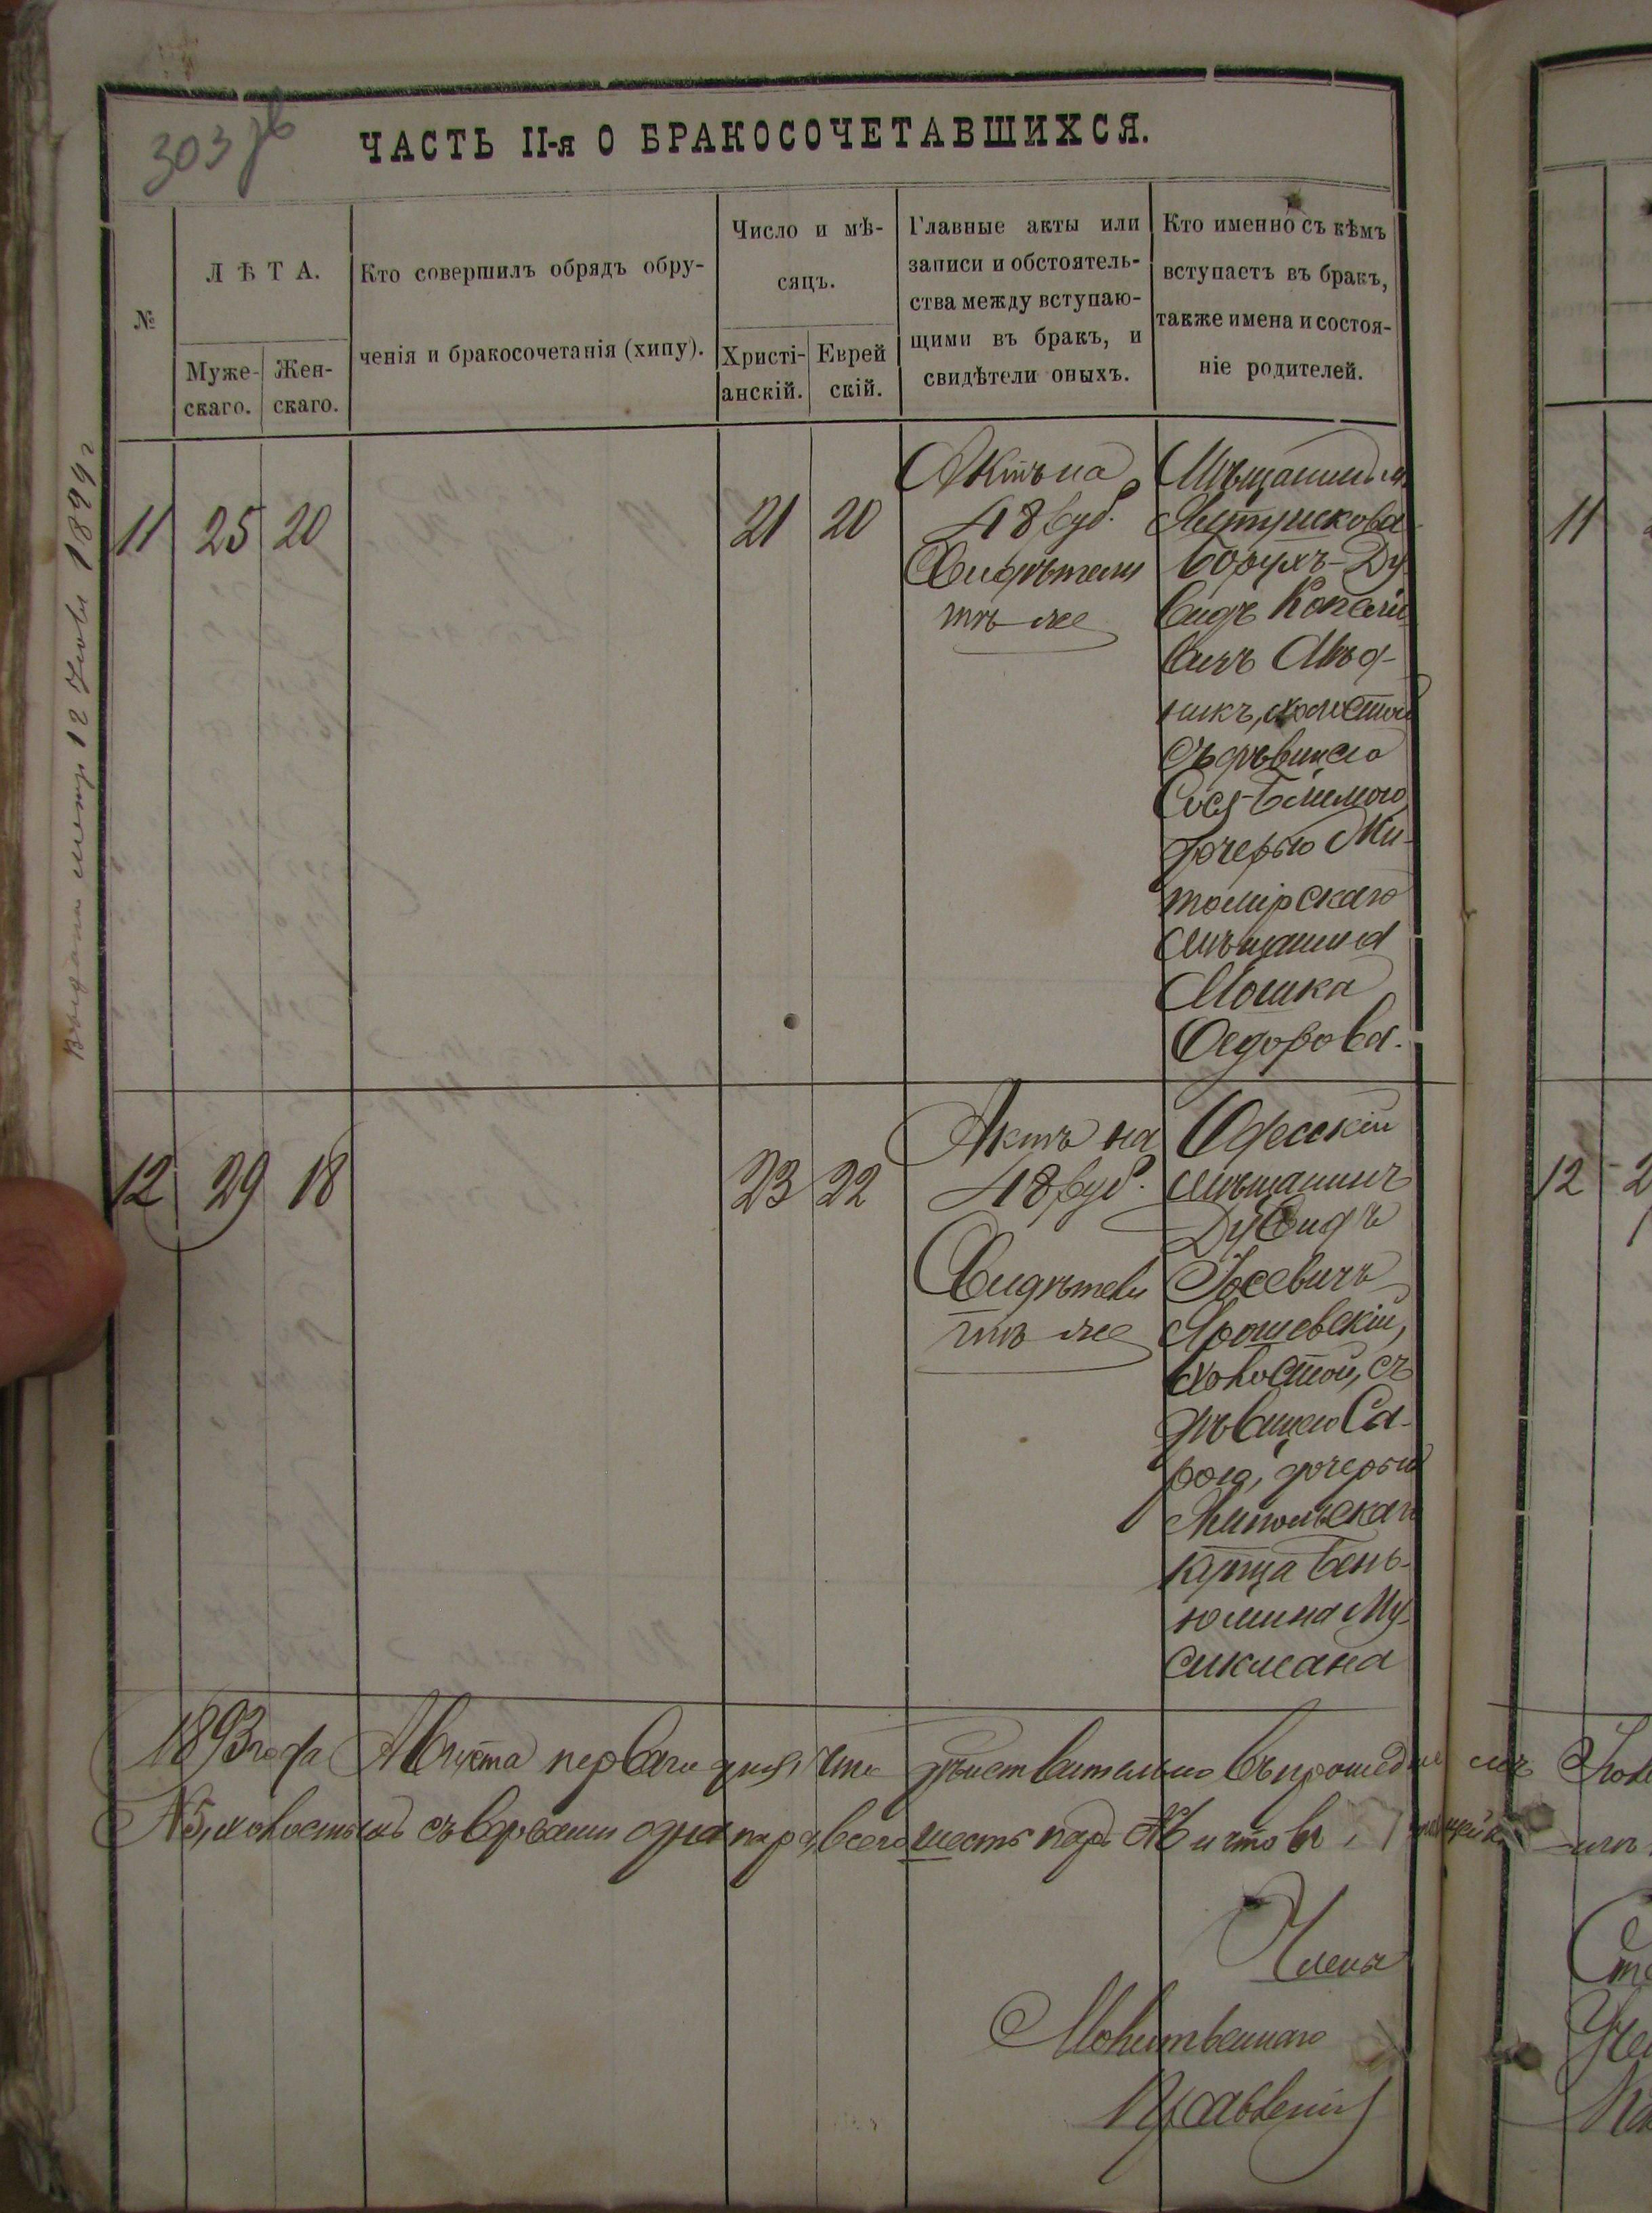 303 об
ЧАСТЬ II-я О БРАКОСОЧЕТАВШИХСЯ.
№
ЛѢТА.
Муже-
скаго.
Жен-
скаго.
Кто совершилъ обрядъ обру-
ченія и бракосочетанія (хипу).
Число и мѣ-
сяцъ.
Христі-
анскій.
Еврей
скій.
Главные акты или
записи и обстоятель-
ства между вступаю-
щими въ бракъ, и
свидѣтели оныхъ.
Кто именно съ кѣмъ
вступаетъ въ бракъ,
также имена и состоя-
ніе родителей.
11
25
20
21
20
Актъ на
48 руб.
Свидѣтели
тѣ-же
Мѣщанинъ м.
Борухъ-Ду-
видъ Копели-
вичъ Мѣд-
никъ, холостой
съ дѣвицею
Сося-Блимою
дочерью Жи-
томірскаго
мѣщанина
Мошка
Федорова.
12
29
18
23
22
Актъ на
48 руб.
Свидѣтели
тѣ же
Одесскій
мѣщанинъ
Дувидъ
Іосевичъ
Ярошевскій,
холостой, съ
дѣвицею Са-
рою, дочерью
купца Бень-
юмина Му-
сикмана
1893 года Августа перваго дня, что дѣйствительно въ прошедшемъ
№ 5, холостыхъ съ вдовами одна пара, всего шесть паръ № и что въ
Членъ
Молитвеннаго
Правленія
Выдана метр. 12 1899 г
11
12